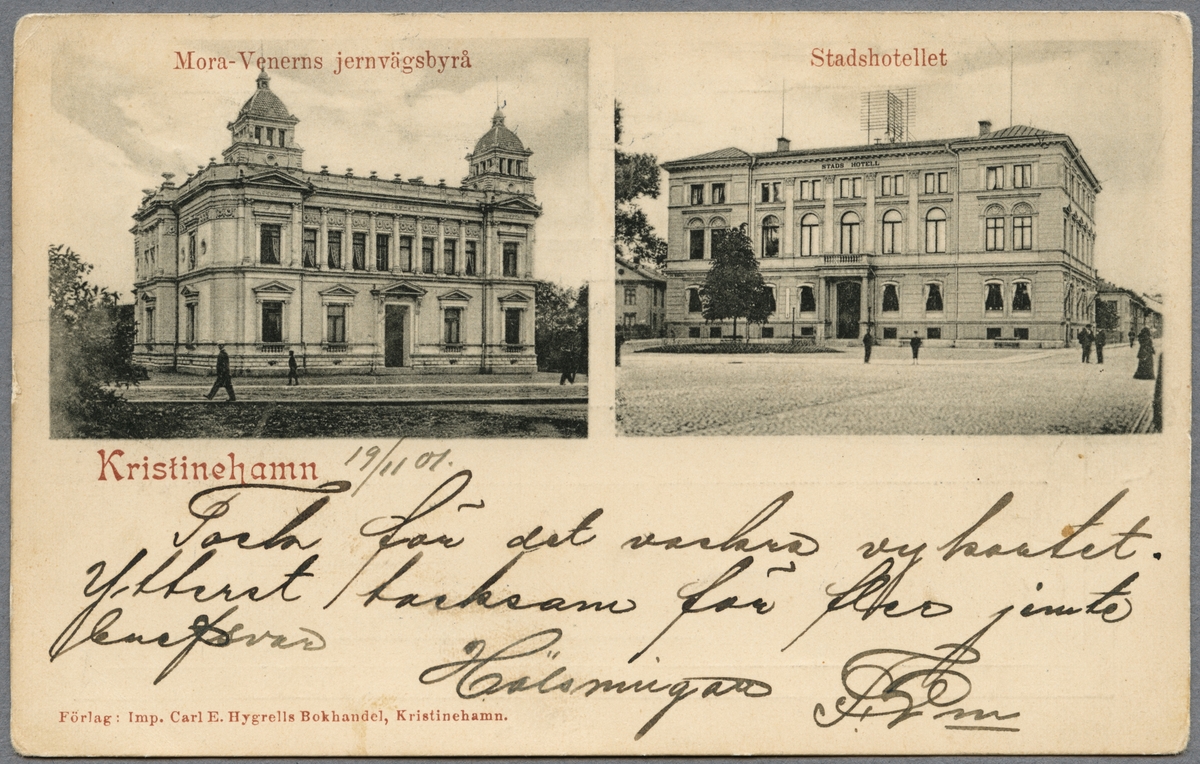 Mora-Venerns jernvägsbyrå
Stadshotellet
STADS HOTELL
Kristinehamn
19/11 01.
Tack för det vackra vykortet.
Ytterst tacksam för fler jemte
brefsvar
Hälsningar
Förlag: Imp. Carl E. Hygrells Bokhandel, Kristinehamn.